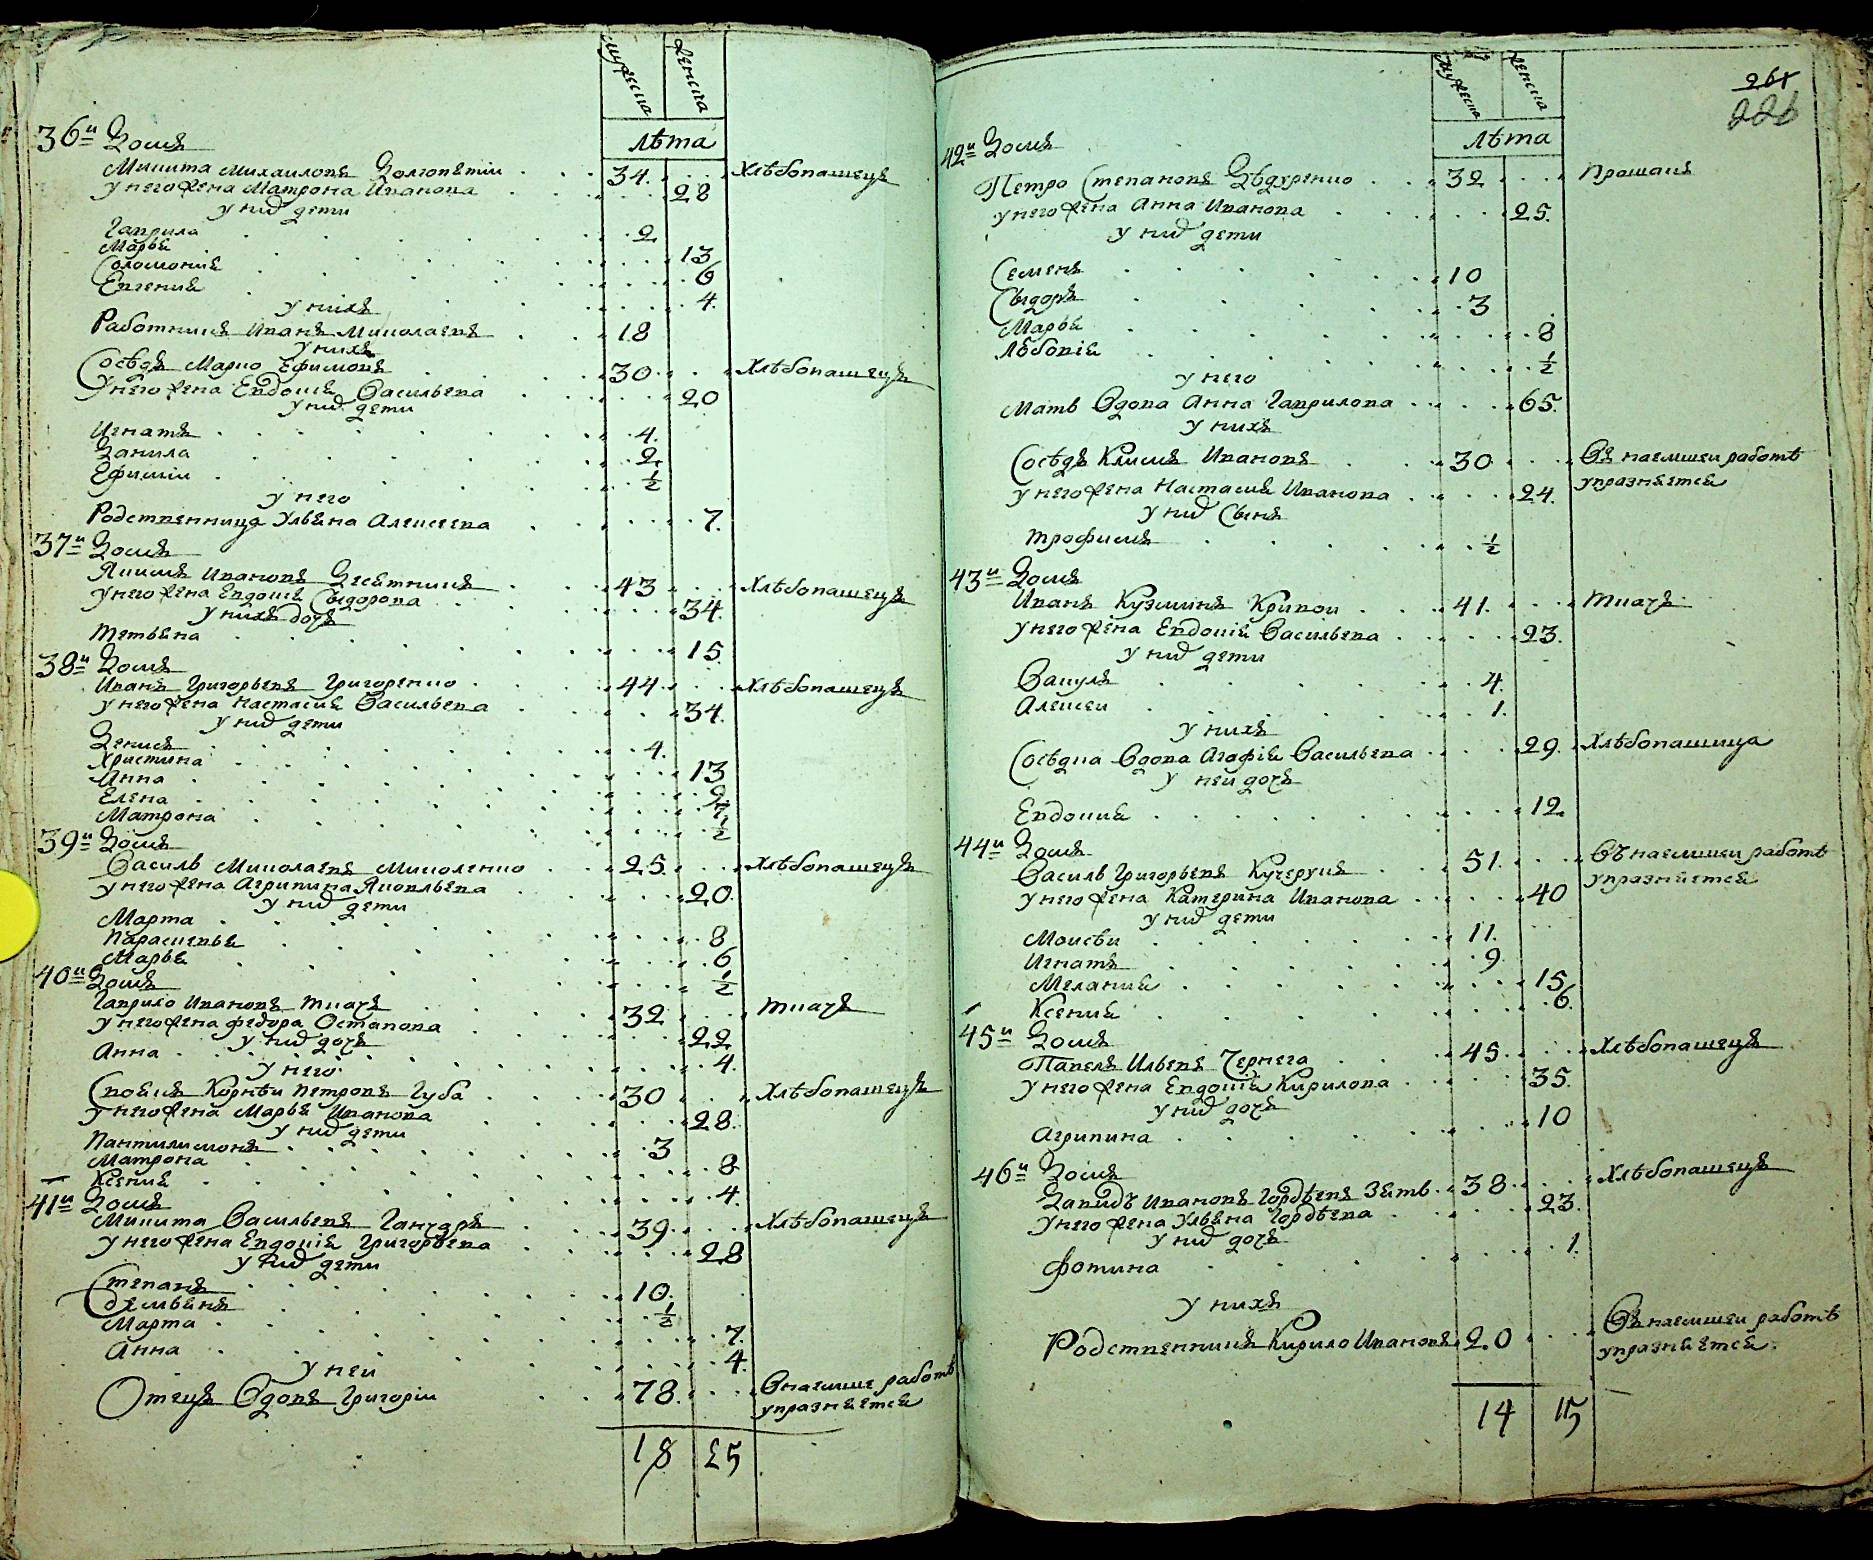 мужеска женска
лѣта
36й Домъ
Микита Михаиловъ Долгопятiи 34 Хлѣбопашецъ
у него жена Матрона Иванова 28
у них дети
Гаврила 2
Марья 13
Соломония 6
Евгения 4
у нихъ
Работникъ Иванъ Миколаевъ 18
у нихъ
Соседъ Марко Ефимовъ 30 Хлѣбопашецъ
у него жена Евдокия Васильева 20
у них дети
Игнатъ 4
Данила 2
Ефимiи ½
у него
Родственница Ульяна Алексеева 7
37й Домъ
Якимъ Ивановъ Десятникъ 43 Хлѣбопашецъ
у него жена Евдокия Сыдорова 34
у нихъ дочь
Тетьяна 15
38й Домъ
Иванъ Григорьевъ Григоренко 44 Хлѣбопашецъ
у него жена Настасия Васильева 34
у них дети
Денисъ 4
Христина 13
Анна 9
Елена
Матрона ½
39й Домъ
Василь Миколаевъ Миколенко 25 Хлѣбопашецъ
у него жена Агрипина Яковльева 20
у них дети
Марта 8
Парасковья 6
Марья ½
40й Домъ
Гаврило Ивановъ Ткачъ 32 Ткачъ
у него жена Федора Остапова 22
у них дочь
Анна 4
у него
Своякъ Корнѣи Петровъ Губа 30 Хлѣбопашецъ
у него жена Марья Иванова 28
у них дети
Пантилимонъ 3
Матрона 8
Ксения 4
41й Домъ
Микита Васильевъ Ганчаръ 39 Хлѣбопашецъ
у него жена Евдокiя Григорьева 28
у них дети
Степанъ 10
Демьянъ ½
Марта 7
Анна 4
у неи
Отецъ Вдовъ Григорiи 78 В наемше работѣ
упразняется
18 25
мужеска женска
261
226
лѣта
42й Домъ
Петро Степановъ Дѣдуренко 32 Прошакъ
у него жена Анна Иванова 25
у них дети
Семенъ 10
Сыдоръ 3
Марья 8
Любовiя ½
у него
Мать Вдова Анна Гаврилова 65
у нихъ
Сосѣдъ Климъ Ивановъ 30 Въ наемшеи работѣ
упразняется
у него жена Настасия Иванова 24
у них Сынъ
Трофимъ ½
43й Домъ
Иванъ Кузминъ Кривои 41 Ткачъ
у него жена Евдокiя Васильева 23
у них дети
Вакулъ 4
Алексеи 1
у нихъ
Сосѣдка Вдова Агафiя Васильева 29 Хлѣбопашица
у неи дочь
Евдокия 12
44й Домъ
Василь Григорьевъ Кучерукъ 51 Въ наемшеи работѣ
упразняется
у него жена Катерина Иванова 40
у них дети
Моисѣи 11
Игнатъ 9
Мелания 15
Ксения 6
45й Домъ
Павелъ Ильевъ Чернега 45 Хлѣбопашецъ
у него жена Евдокiя Кирилова 35
у них дочь
Агрипина 10
46й Домъ
Давидъ Ивановъ Гордѣевъ Зять 38 Хлѣбопашецъ
у него жена Ульяна Гордѣева 23
у них дочь
Фотина 1
у нихъ
Родственникъ Кирило Ивановъ 20 Въ наемшеи работѣ
упразняется
14 15